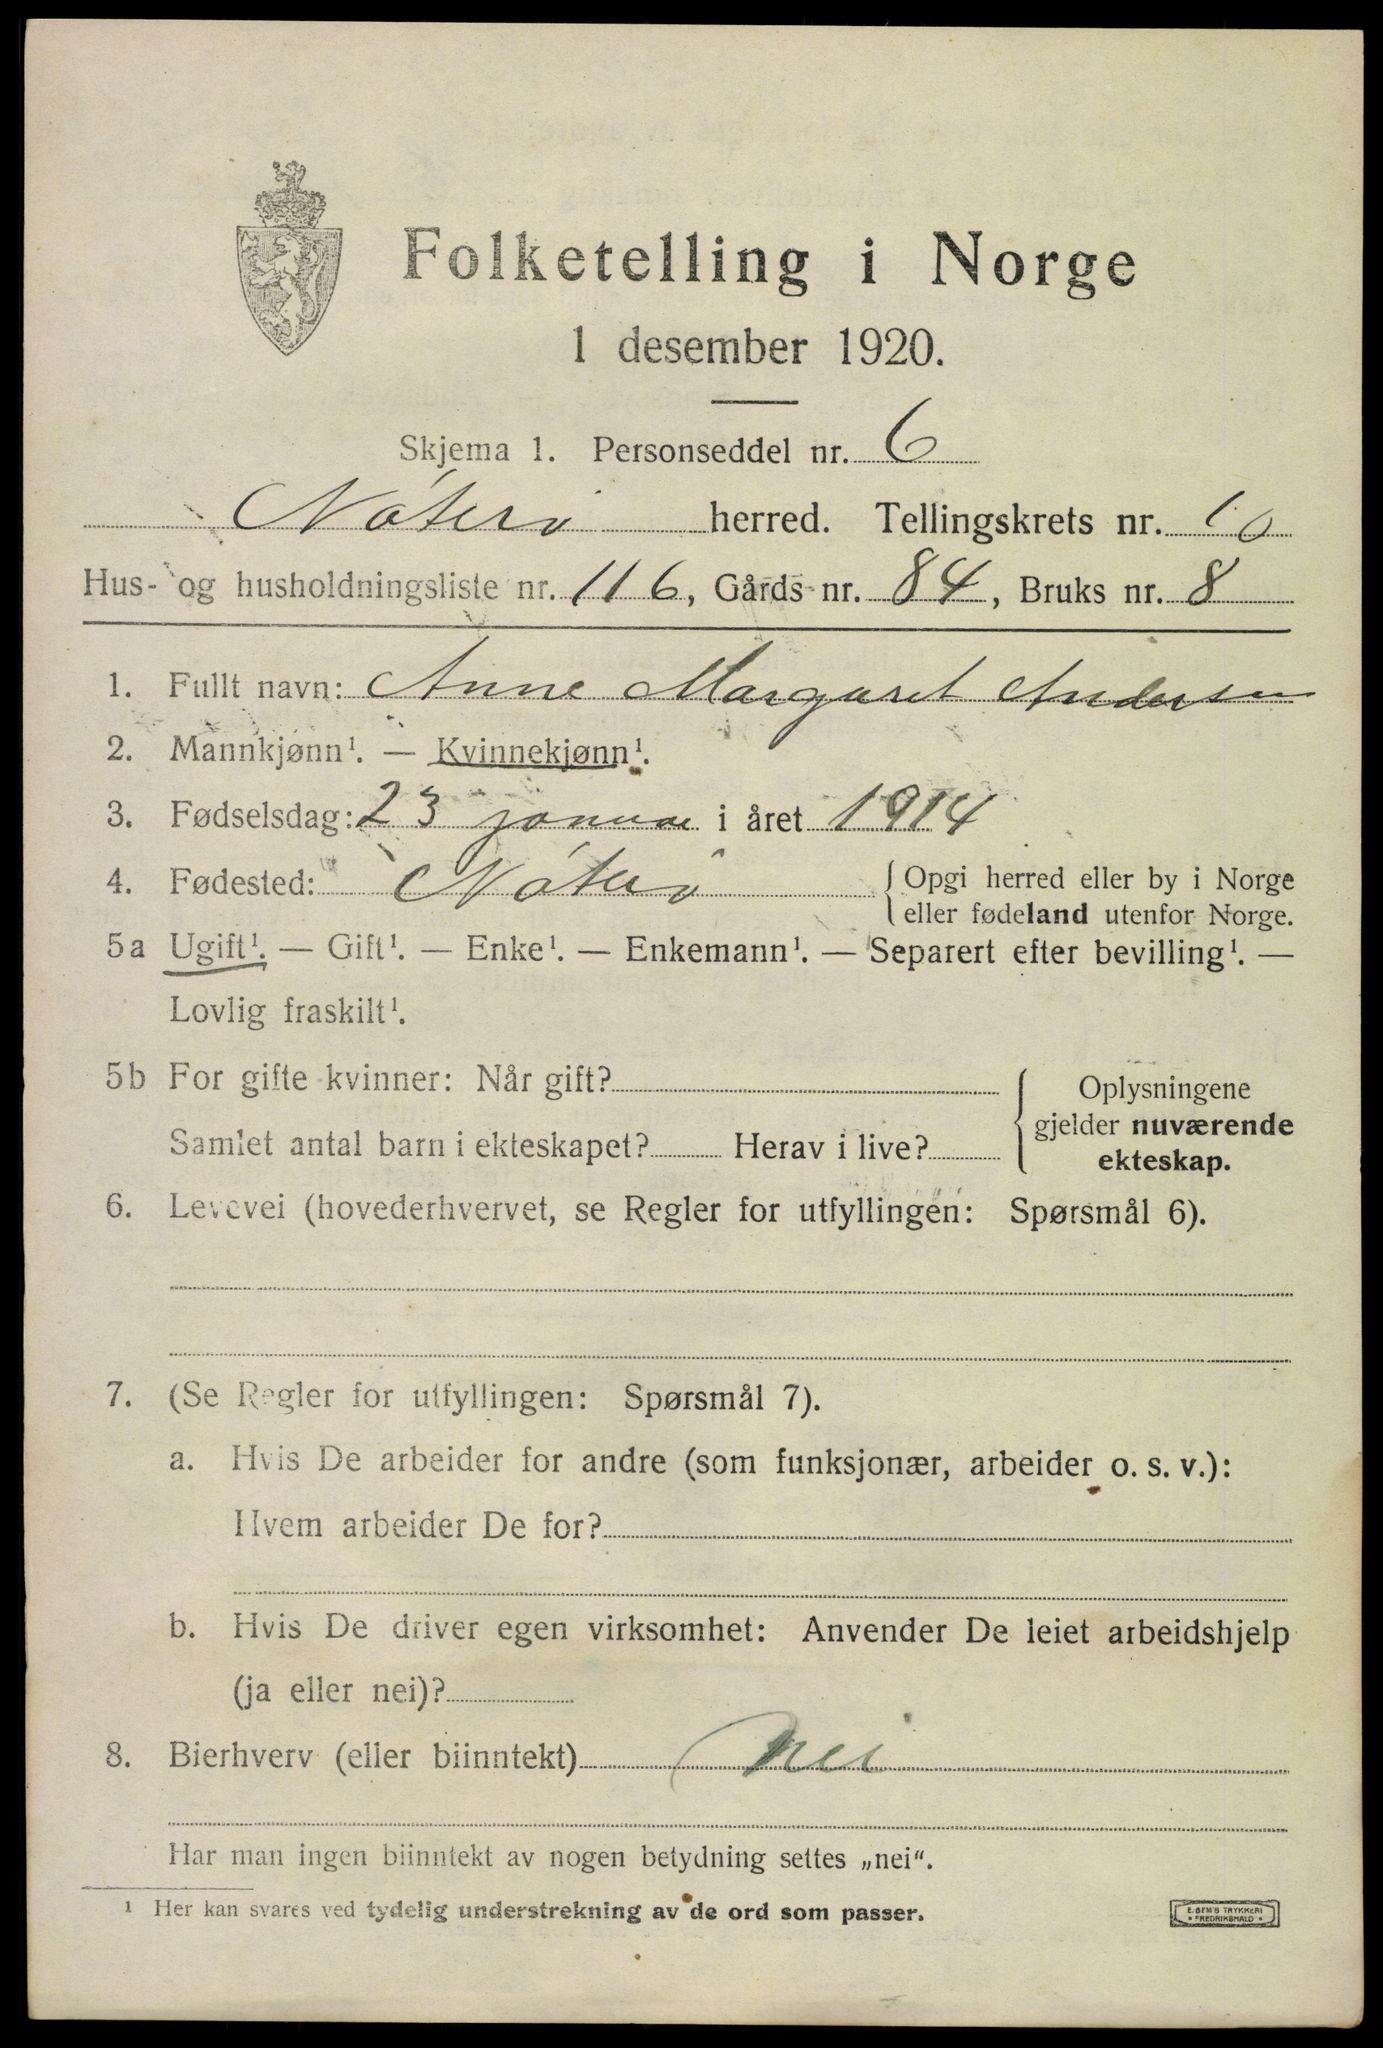 Folketelling i Norge
1 desember 1920.
Skjema 1. Personseddel nr. 6
Nøterø herred. Tellingskrets nr. 10
Hus- og husholdningsliste nr. 116, Gårds nr. 84, Bruks nr. 8
1. Fullt navn: Anne Margaret Andersen
2. Mannkjønn¹. — Kvinnekjønn¹.
3. Fødselsdag: 23 januar i året 1914
4. Fødested: Nøterø { Opgi herred eller by i Norge
eller fødeland utenfor Norge.
5a Ugift¹. — Gift¹. — Enke¹. — Enkemann¹. — Separert efter bevilling¹. —
Lovlig fraskilt¹.
5b For gifte kvinner: Når gift? { Oplysningene
gjelder nuværende
Samlet antal barn i ekteskapet? Herav i live?
ekteskap.
6. Levevei (hovederhvervet, se Regler for utfyllingen: Spørsmål 6).
7. (Se Regler for utfyllingen: Spørsmål 7).
a. Hvis De arbeider for andre (som funksjonær, arbeider o. s. v.):
Hvem arbeider De for?
b. Hvis De driver egen virksomhet: Anvender De leiet arbeidshjelp
(ja eller nei)?
8. Bierhverv (eller biinntekt) Nei
Har man ingen biinntekt av nogen betydning settes „nei“.
¹ Her kan svares ved tydelig understrekning av de ord som passer.
E. SEM'S TRYKKERI
* FREDRIKSHALD *